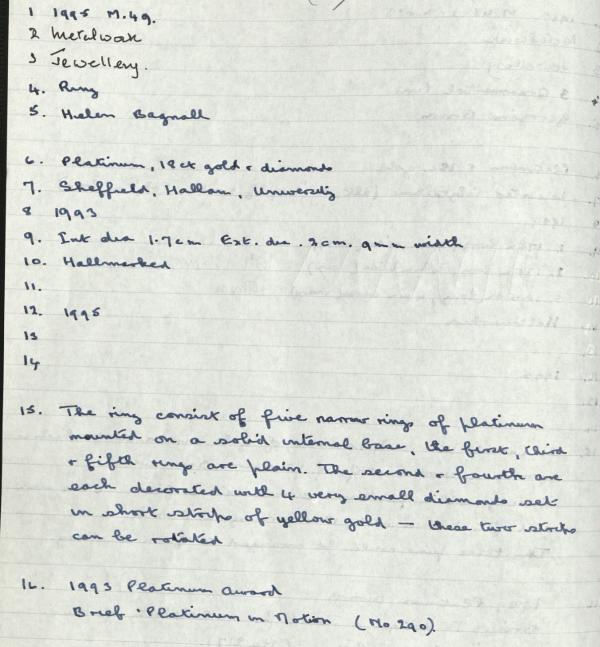 1 1995 M.49.
2 Metalwork
3 Jewellery.
4. Ring
5. Helen Bagnall
6. Platinum, 18ct gold & diamonds
7. Sheffield, Hallam, University
8 1993
9. Int dia 1.7cm Ext. dia. 2cm. 9mm width
10. Hallmarked
11.
12. 1995
13
14
15. The ring consist of five narrow rings of platinum
mounted on a solid internal base, the first, third
& fifth rings are plain. The second & fourth are
each decorated with 4 very small diamonds set
in short strips of yellow gold — these two strips
can be rotated
16. 1993 Platinum award
Brief · Platinum in Motion (No 290).